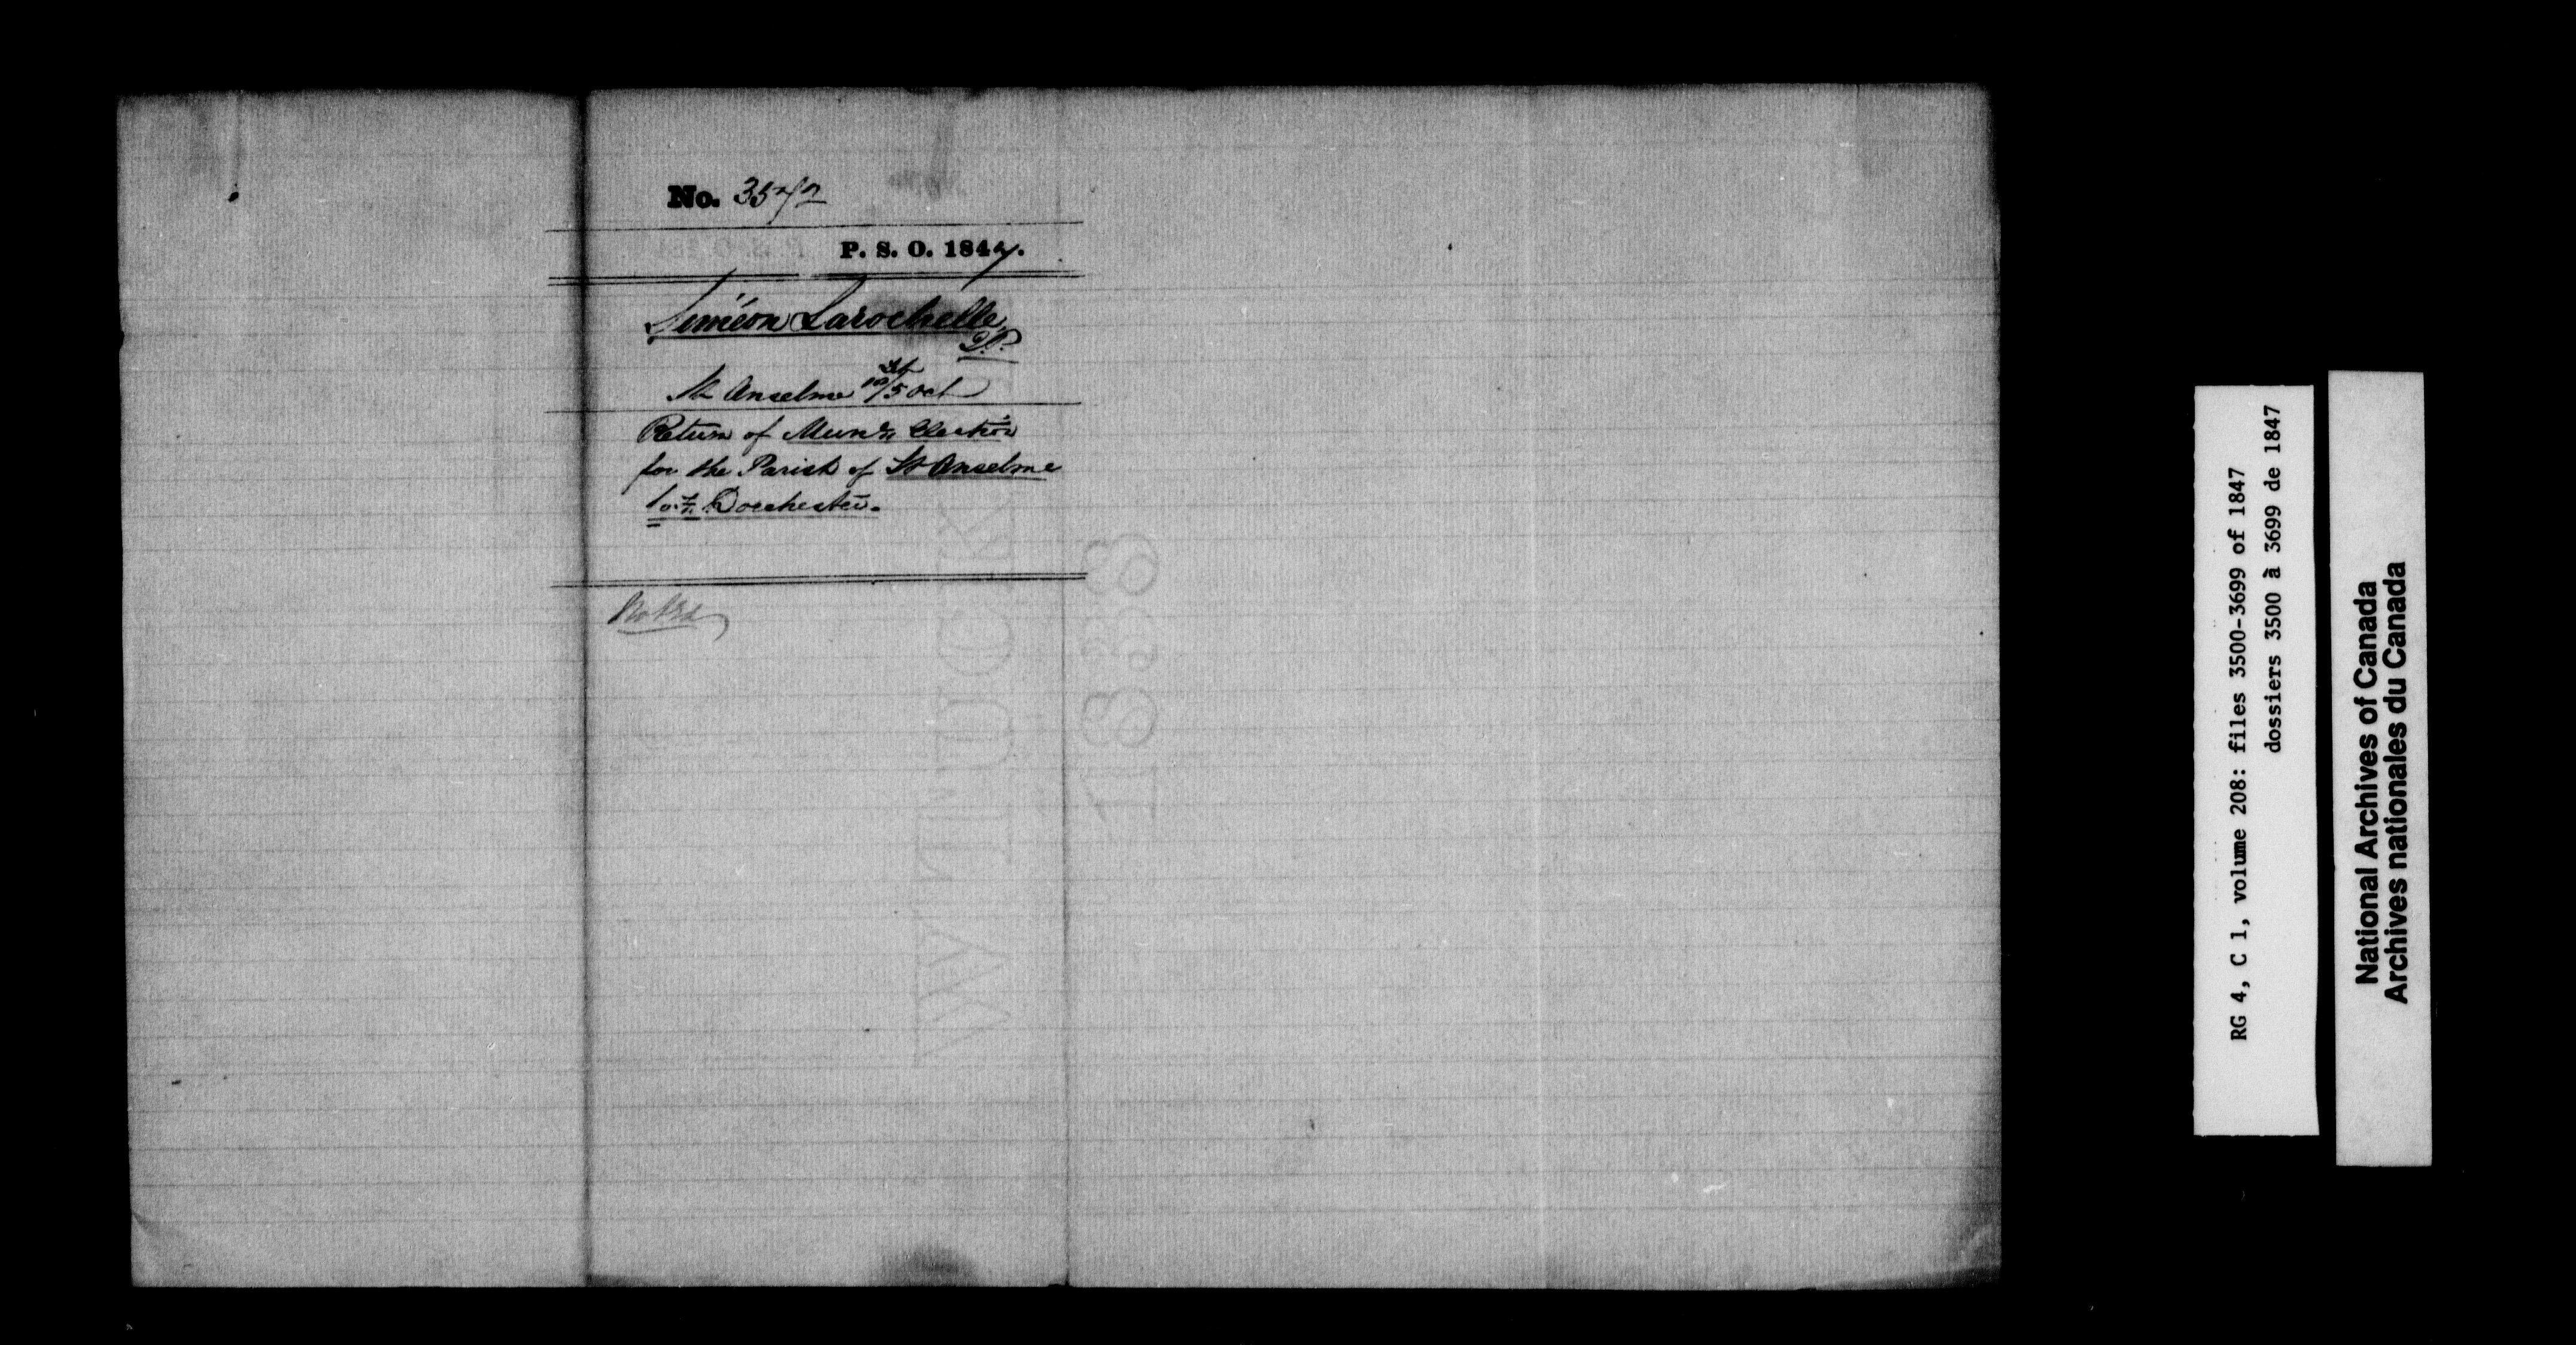 No. 3572
P. S. O. 1847.
Siméon Larochelle,
J.P.
St Anselme 5 Oct
Return of Mun:l Election
for the Parish of St Anselme
Co:y Dorchester.
WYNTUCK
1833
RG 4, C 1, volume 208: files 3500-3699 of 1847
dossiers 3500 à 3699 de 1847
National Archives of Canada
Archives nationales du Canada